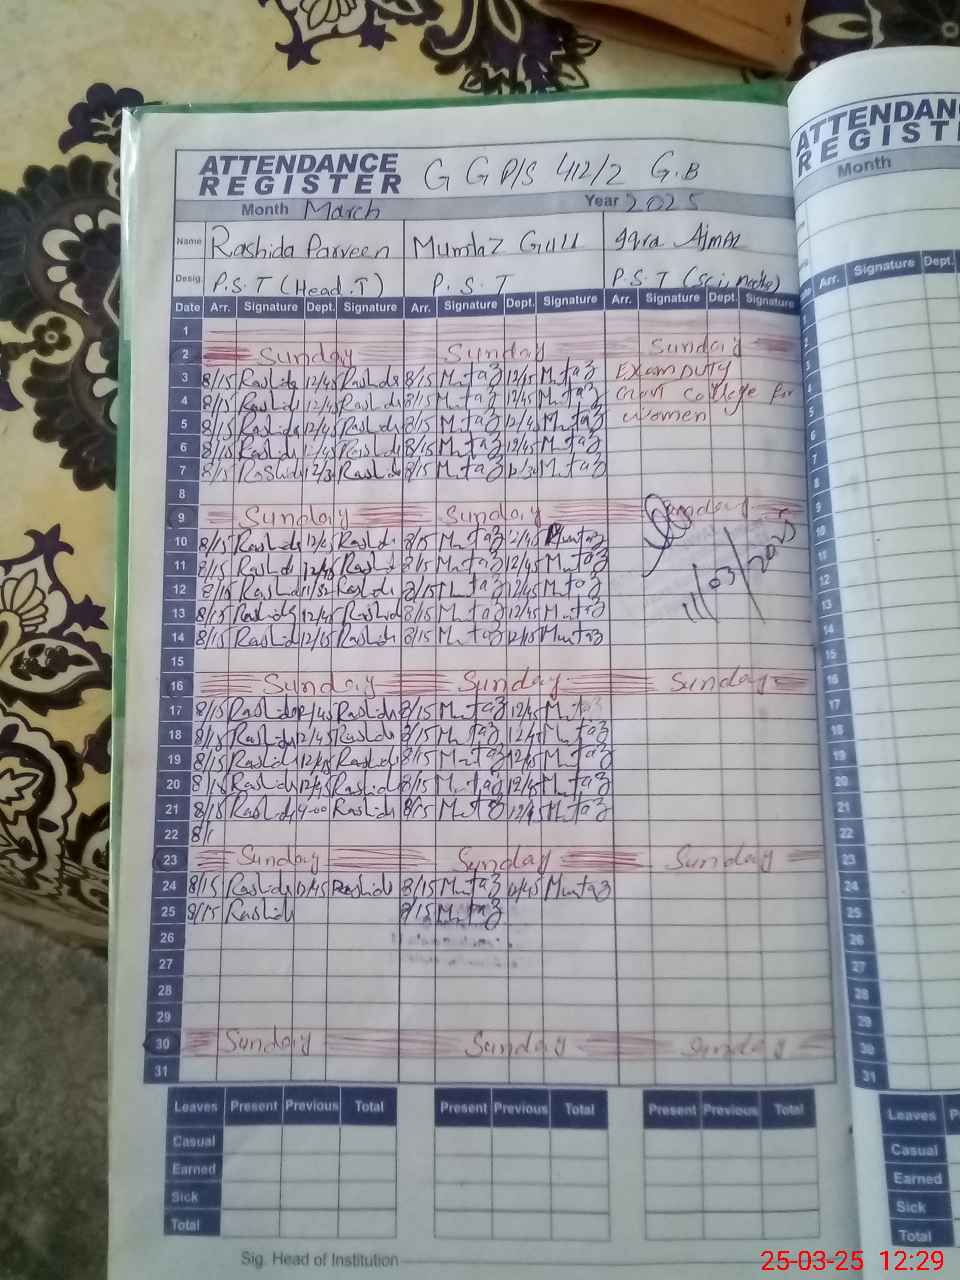 ATTENDANCE REGISTER G G P/S 412/2 G.B
Month March Year 2025
Name Rashida Parveen Mumtaz Gull Iqra Ajmal
Desig. P.S.T (Head.T) P.S.T P.S.T (Sci, Maths)
Date Arr. Signature Dept. Signature Arr. Signature Dept. Signature Arr. Signature Dept. Signature
1
2 Sunday Sunday Sunday
3 8/15 Rashida 12/45 Rashida 8/15 Mumtaz 12/45 Mumtaz Exam Duty
4 8/15 Rashida 12/45 Rashida 8/15 Mumtaz 12/45 Mumtaz Govt College for
5 8/15 Rashida 12/45 Rashida 8/15 Mumtaz 12/45 Mumtaz women
6 8/15 Rashida 12/45 Rashida 8/15 Mumtaz 12/45 Mumtaz
7 8/15 Rashida 12/30 Rashida 8/15 Mumtaz 12/30 Mumtaz
8
9 Sunday Sunday Sunday
10 8/15 Rashida 12/45 Rashida 8/15 Mumtaz 12/45 Mumtaz
11 8/15 Rashida 12/45 Rashida 8/15 Mumtaz 12/45 Mumtaz 11/03/2025
12 8/15 Rashida Rashida 8/15 Mumtaz 12/45 Mumtaz
13 8/15 Rashida 12/45 Rashida 8/15 Mumtaz 12/45 Mumtaz
14 8/15 Rashida 12/15 Rashida 8/15 Mumtaz 12/15 Mumtaz
15
16 Sunday Sunday Sunday
17 8/15 Rashida 12/45 Rashida 8/15 Mumtaz 12/45 Mumtaz
18 8/15 Rashida 12/45 Rashida 8/15 Mumtaz 12/45 Mumtaz
19 8/15 Rashida 12/45 Rashida 8/15 Mumtaz 12/45 Mumtaz
20 8/15 Rashida 12/45 Rashida 8/15 Mumtaz 12/45 Mumtaz
21 8/15 Rashida 9-00 Rashida 8/15 Mumtaz 12/15 Mumtaz
22 8/1
23 Sunday Sunday Sunday
24 8/15 Rashida 12/45 Rashida 8/15 Mumtaz 12/45 Mumtaz
25 8/15 Rashida 8/15 Mumtaz
26
27
28
29
30 Sunday Sunday Sunday
31
Leaves Present Previous Total Present Previous Total Present Previous Total
Casual
Earned
Sick
Total
Sig. Head of Institution
ATTENDANC
REGIST
Month
Arr. Signature Dept.
1
2
3
4
5
6
7
8
9
10
11
12
13
14
15
16
17
18
19
20
21
22
23
24
25
26
27
28
29
30
31
Leaves P
Casual
Earned
Sick
Total
25-03-25 12:29